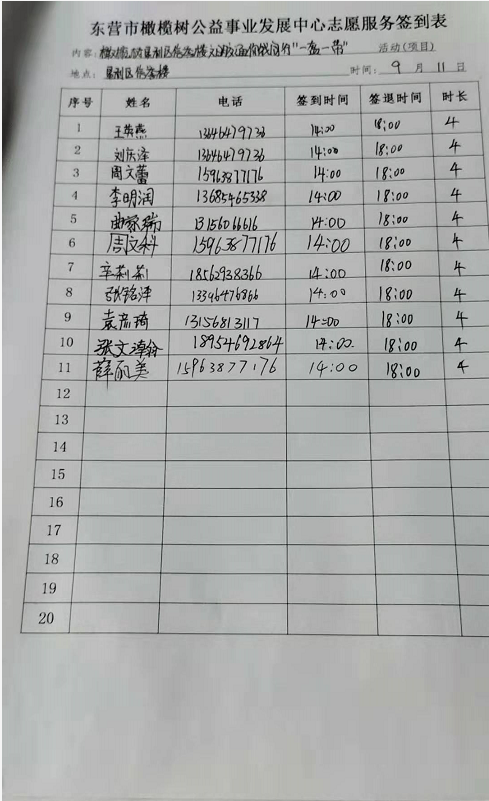 东营市橄榄树公益事业发展中心志愿服务签到表
内容: "一盔一带" 活动(项目)
地点: 垦利区 时间: 9 月 11 日
序号 姓名 电话 签到时间 签退时间 时长
1 王英燕 13646479736 14:00 18:00 4
2 刘庆泽 13646479736 14:00 18:00 4
3 周文蕾 15963877176 14:00 18:00 4
4 李明润 13685465338 14:00 18:00 4
5 瑞 13156066616 14:00 18:00 4
6 周文科 15963877176 14:00 18:00 4
7 辛莉莉 18562938366 14:00 18:00 4
8 张铭泽 13346476866 14:00 18:00 4
9 袁彦琦 13156813117 14:00 18:00 4
10 张文 18954692864 14:00 18:00 4
11 薛丽美 15963877176 14:00 18:00 4
12
13
14
15
16
17
18
19
20